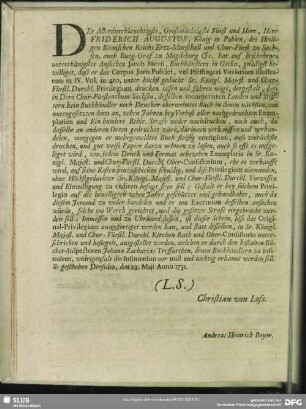 DEr Allerdurchlauchtigste, Großmächtigste Fürst und Herr, Herr
FRIDERICH AUGUSTUS, König in Pohlen, des Heili-
gen Römischen Reichs Ertz-Marschall und Chur-Fürst zu Sach-
sen, auch Burg-Graf zu Magdeburg &c. hat auf beschehenes
unterthänigstes Ansuchen Jacob Mevii, Buchhändlers in Gotha, gnädigst be-
williget, daß er das Corpus Juris Publici, vel Pfeffingeri Vitriarium illustra-
tum in IV. Vol. in 4to, unter höchst gedacht Sr. Königl. Majest. und Chur-
Fürstl. Durchl. Privilegium drucken lassen und führen möge, dergestalt, daß
in Dero Chur-Fürstenthum Sachsen, desselben incorporirten Landen und Stiff-
tern kein Buchhändler noch Drucker oberwehntes Buch in denen nächsten, von
unengesetzten dato an, zehen Jahren bey Verlust aller nachgedruckten Exem-
plarien und Ein hundert Rthlr. Straffe weder nachdrucken, noch auch, da
dasselbe an anderen Orten gedrucket wäre, darinnen verkauffen und verhan-
deln, wogegen er mehrgemeldtes Buch fleißig corrigiren, aufs zierlichste
drucken, und gut weiß Papier darzu nehmen zu lassen, auch so offt es aufge-
leget wird, von jedem Druck und Format achtzehen Exemplaria in Sr. Kö-
nigl. Majest. und Chur-Fürstl. Durchl. Ober-Consistorium, ehe es verkaufft
wird, auf seine Kosten einzuschicken schuldig, und diß Privilegium niemanden,
ohne Höchstgedachter Sr. Königl. Majest. und Chur-Fürstl. Durchl. Vorwissen
und Einwilligung zu cediren befugt seyn soll; Gestalt er bey solchem Privi-
legio auf die bewilligten zehen Jahre geschützet und gehandhabet, auch da
diesem jemand zu wider handeln und er um Execution desselben ansuchen
würde, solche ins Werck gerichtet, und die gesetzte Straffe eingebracht wer-
den soll; Immassen und zu Uhrkund dessen, ist dieser Schein, biß das Origi-
nal-Privilegium ausgefertiget werden kan, und statt desselben, in Sr. Königl.
Majest. und Chur-Fürstl. Durchl. Kirchen-Rath und Ober-Consistorio unter-
schrieben und besiegelt, ausgestellet worden, welchen er durch den bestallten Bü-
cher-Inspectorem Johann Zacharias Trefurthen, denen Buchhändlern zu insi-
nuiren, widrigenfalls die Insinuation vor null und nichtig erkannt werden soll.
So geschehen Dreßden, den 23. Maji Anno 1731.
(L.S.)
Christian von Loß.
Andreas Heinrich Beyer.
SLUB
Wir führen Wissen.
Deutsche Forschungsgemeinschaft